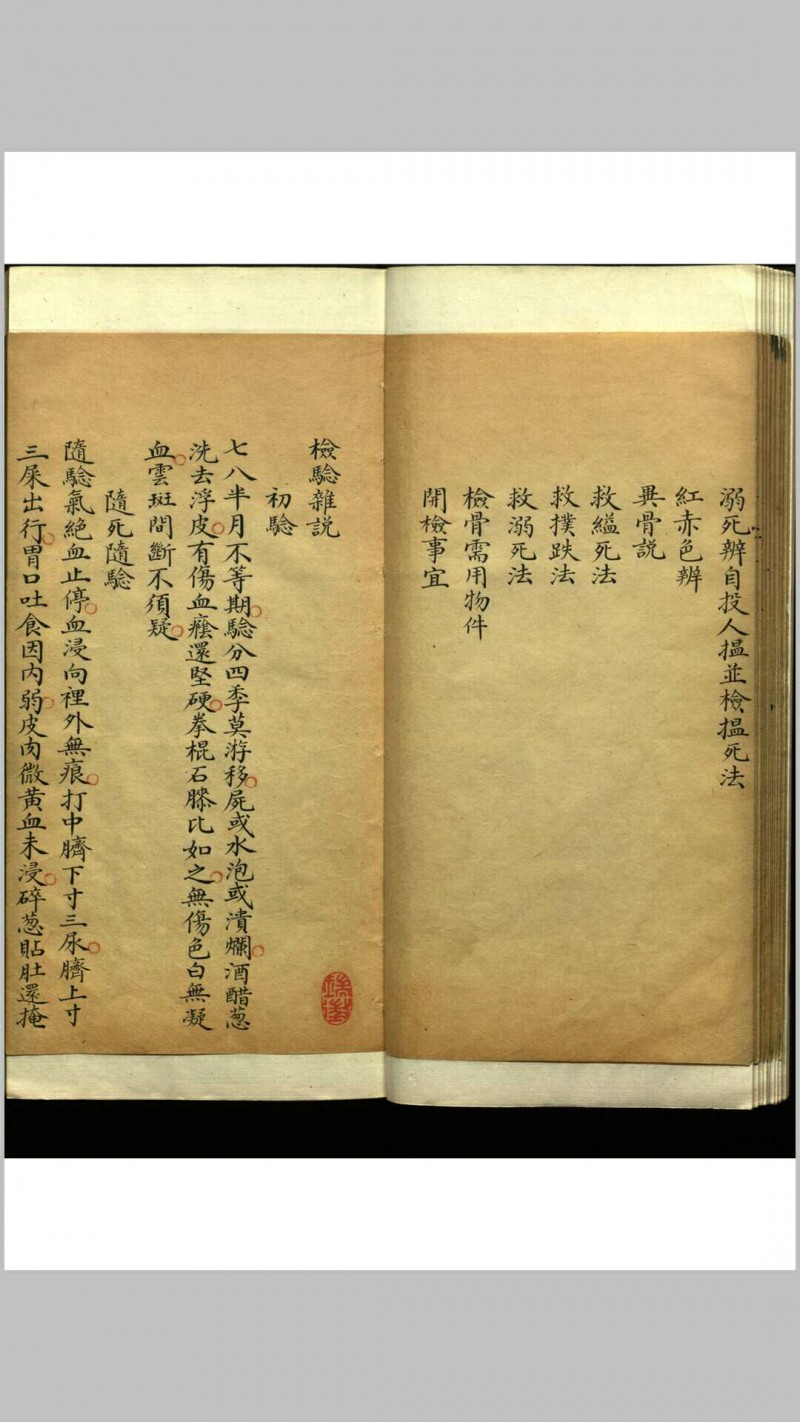 溺死辨自投人搵並檢搵死法
紅赤色辨
異骨説
救縊死法
救撲跌法
救溺死法
檢骨需用物件
開檢事宜
檢驗雜説
初驗
七八半月不等期驗分四季莫游移屍或水泡或潰爛酒醋葱
洗去浮皮有傷血癊還堅硬拳棍石膝比如之無傷色白無凝
血雲斑間斷不須疑
隨死隨驗
隨驗氣絶血止停血浸向裡外無痕打中臍下寸三尿臍上寸
三屎出行胃口吐食因内弱皮肉微黄血未浸碎葱貼肚還掩